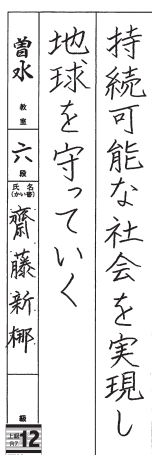 持続可能な社会を実現し
地球を守っていく
曽水 教室
六 段
氏名(かい書) 齋藤新梛
級
12